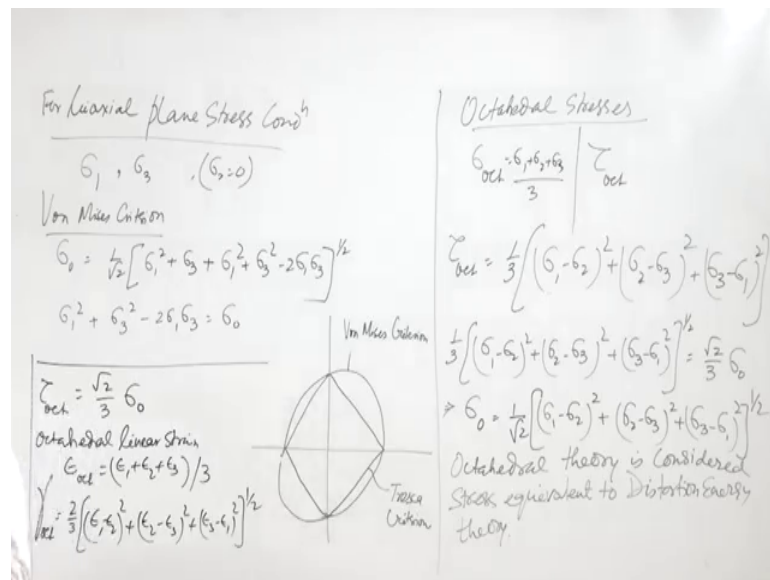 For biaxial plane Stress Condⁿ
σ₁ , σ₃ , (σ₂=0)
Von Mises Criterion
σ₀ = 1/√2 [σ₁² + σ₃ + σ₁² + σ₃² - 2σ₁σ₃]^1/2
σ₁² + σ₃² - 2σ₁σ₃ = σ₀
τoct = √2/3 σ₀
Octahedral linear strain
ϵoct = (ϵ₁+ϵ₂+ϵ₃)/3
γoct = 2/3 [(ϵ₁-ϵ₂)² + (ϵ₂-ϵ₃)² + (ϵ₃-ϵ₁)²]^1/2
Von Mises Criterion
Tresca
Criterion
Octahedral Stresses
σoct = σ₁+σ₂+σ₃/3 | τoct
τoct = 1/3 [(σ₁-σ₂)² + (σ₂-σ₃)² + (σ₃-σ₁)²]
1/3 [(σ₁-σ₂)² + (σ₂-σ₃)² + (σ₃-σ₁)²]^1/2 = √2/3 σ₀
⇒ σ₀ = 1/√2 [(σ₁-σ₂)² + (σ₂-σ₃)² + (σ₃-σ₁)²]^1/2
Octahedral theory is Considered
Stress equivalent to Distortion Energy
theory.